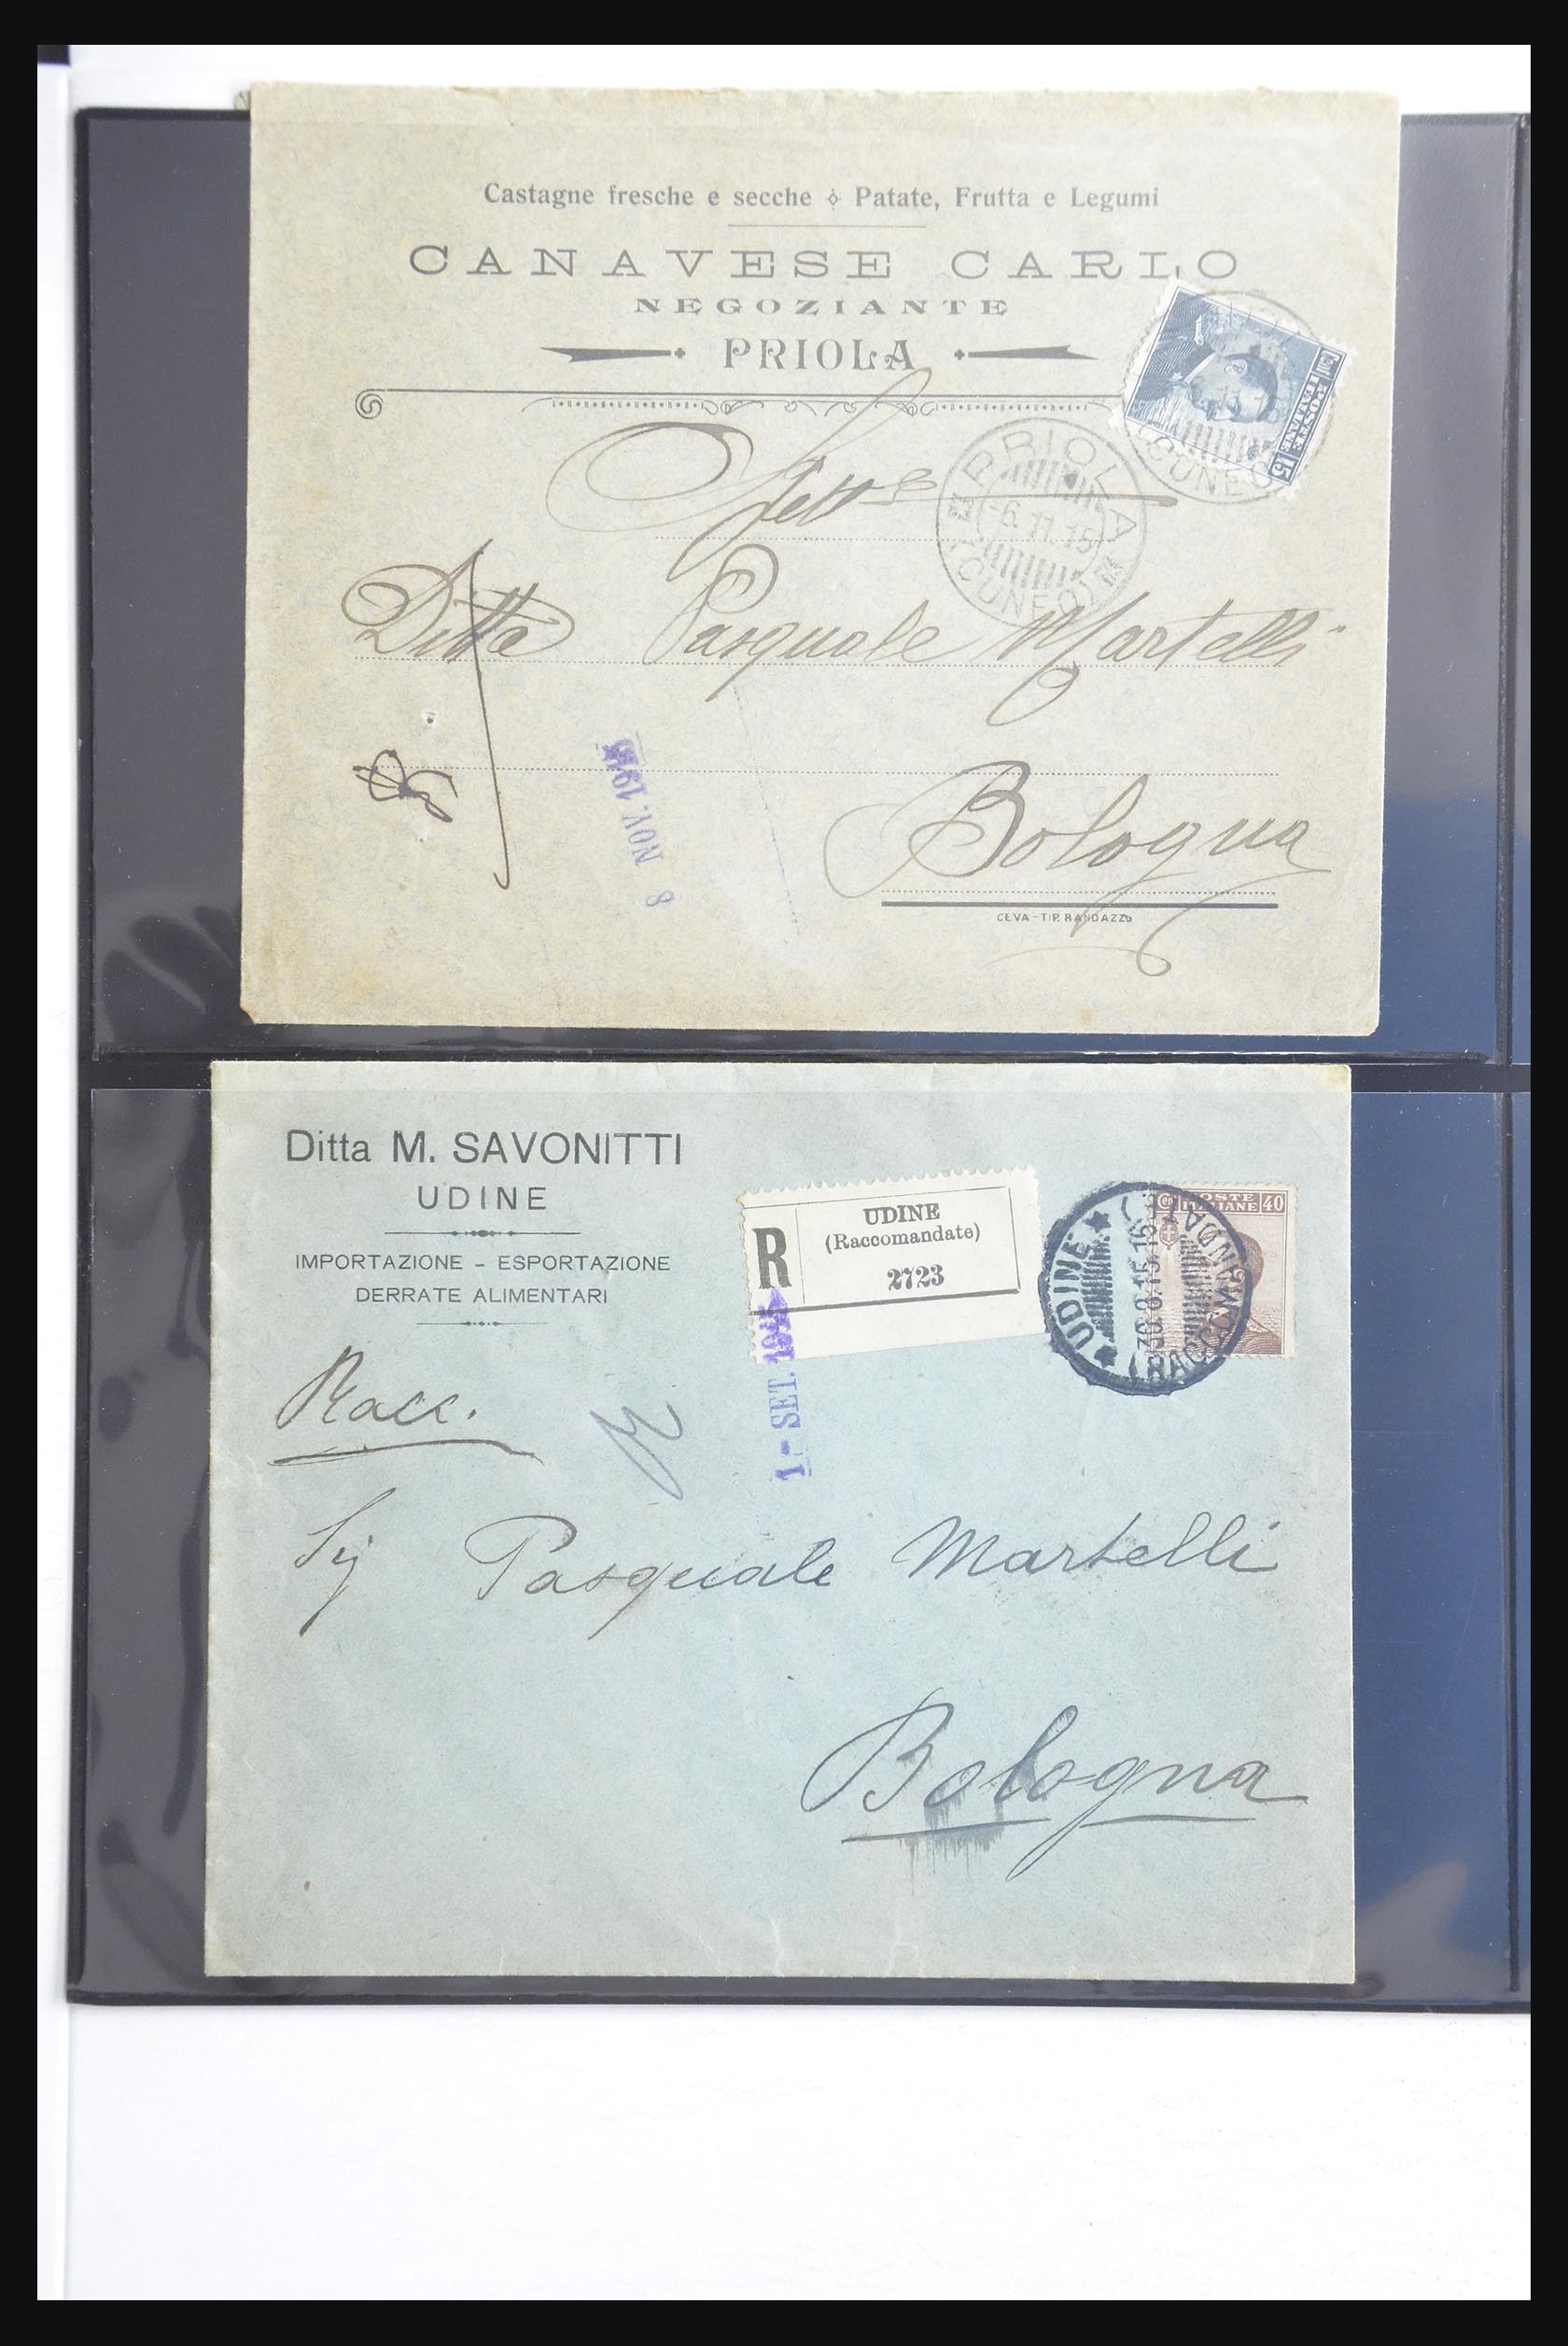 Castagne fresche e secche Patate, Frutta e Legumi
CANAVESE CARLO
NEGOZIANTE
PRIOLA
POSTE ITALIANE
15
(CUNEO)
PRIOLA
-6.11.15
(CUNEO)
Ditta Pasquale Martelli
8 NOV. 1915
Bologna
CEVA - TIP. RANDAZZO
Ditta M. SAVONITTI
UDINE
IMPORTAZIONE - ESPORTAZIONE
DERRATE ALIMENTARI
R
UDINE
(Raccomandate)
2723
POSTE ITALIANE 40
UDINE
30.8.15.16
(RACCOMANDATE)
1 - SET. 1915
Racc.
Sig Pasquale Martelli
Bologna